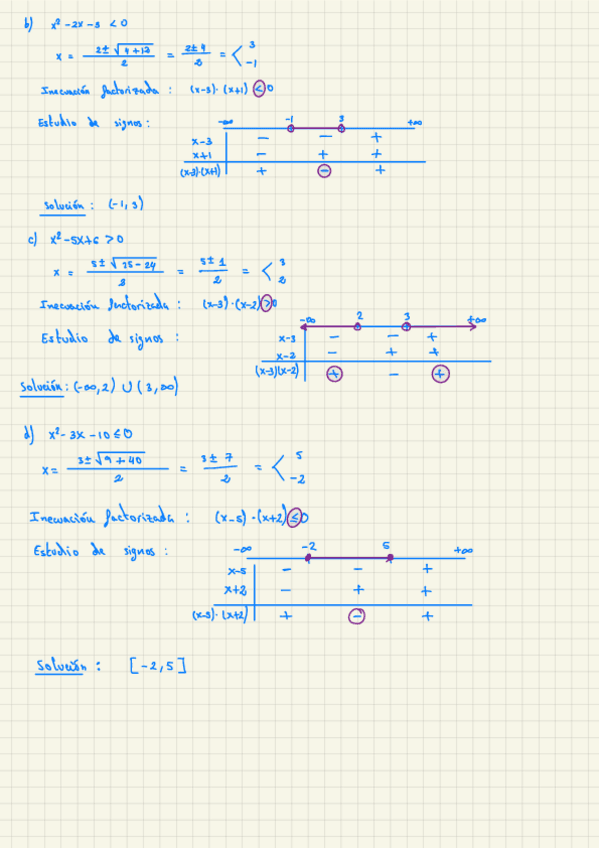 b) x² - 2x - 3 < 0
x = 2 ± √4+12 / 2 = 2 ± 4 / 2 = < 3 -1
Inecuación factorizada : (x-3)·(x+1) < 0
Estudio de signos :
-∞ -1 3 +∞
x-3 - - +
x+1 - + +
(x-3)·(x+1) + - +
Solución : (-1, 3)
c) x² - 5x + 6 > 0
x = 5 ± √25 - 24 / 2 = 5 ± 1 / 2 = < 3 2
Inecuación factorizada : (x-3)·(x-2) > 0
Estudio de signos :
-∞ 2 3 +∞
x-3 - - +
x-2 - + +
(x-3)(x-2) + - +
Solución : (-∞, 2) ∪ (3, ∞)
d) x² - 3x - 10 ≤ 0
x = 3 ± √9 + 40 / 2 = 3 ± 7 / 2 = < 5 -2
Inecuación factorizada : (x-5)·(x+2) ≤ 0
Estudio de signos :
-∞ -2 5 +∞
x-5 - - +
x+2 - + +
(x-5)·(x+2) + - +
Solución : [-2, 5]